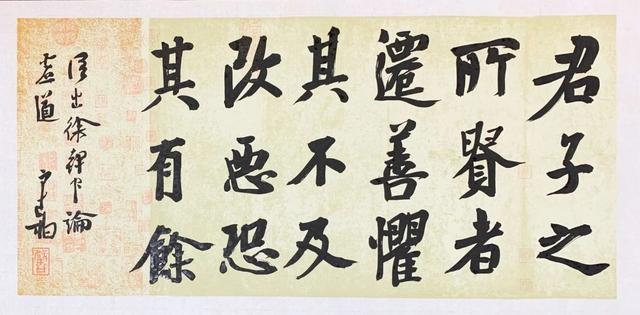 君子之
所賢者
遷善懼
其不及
改惡恐
其有餘
語出徐幹中論
虛道